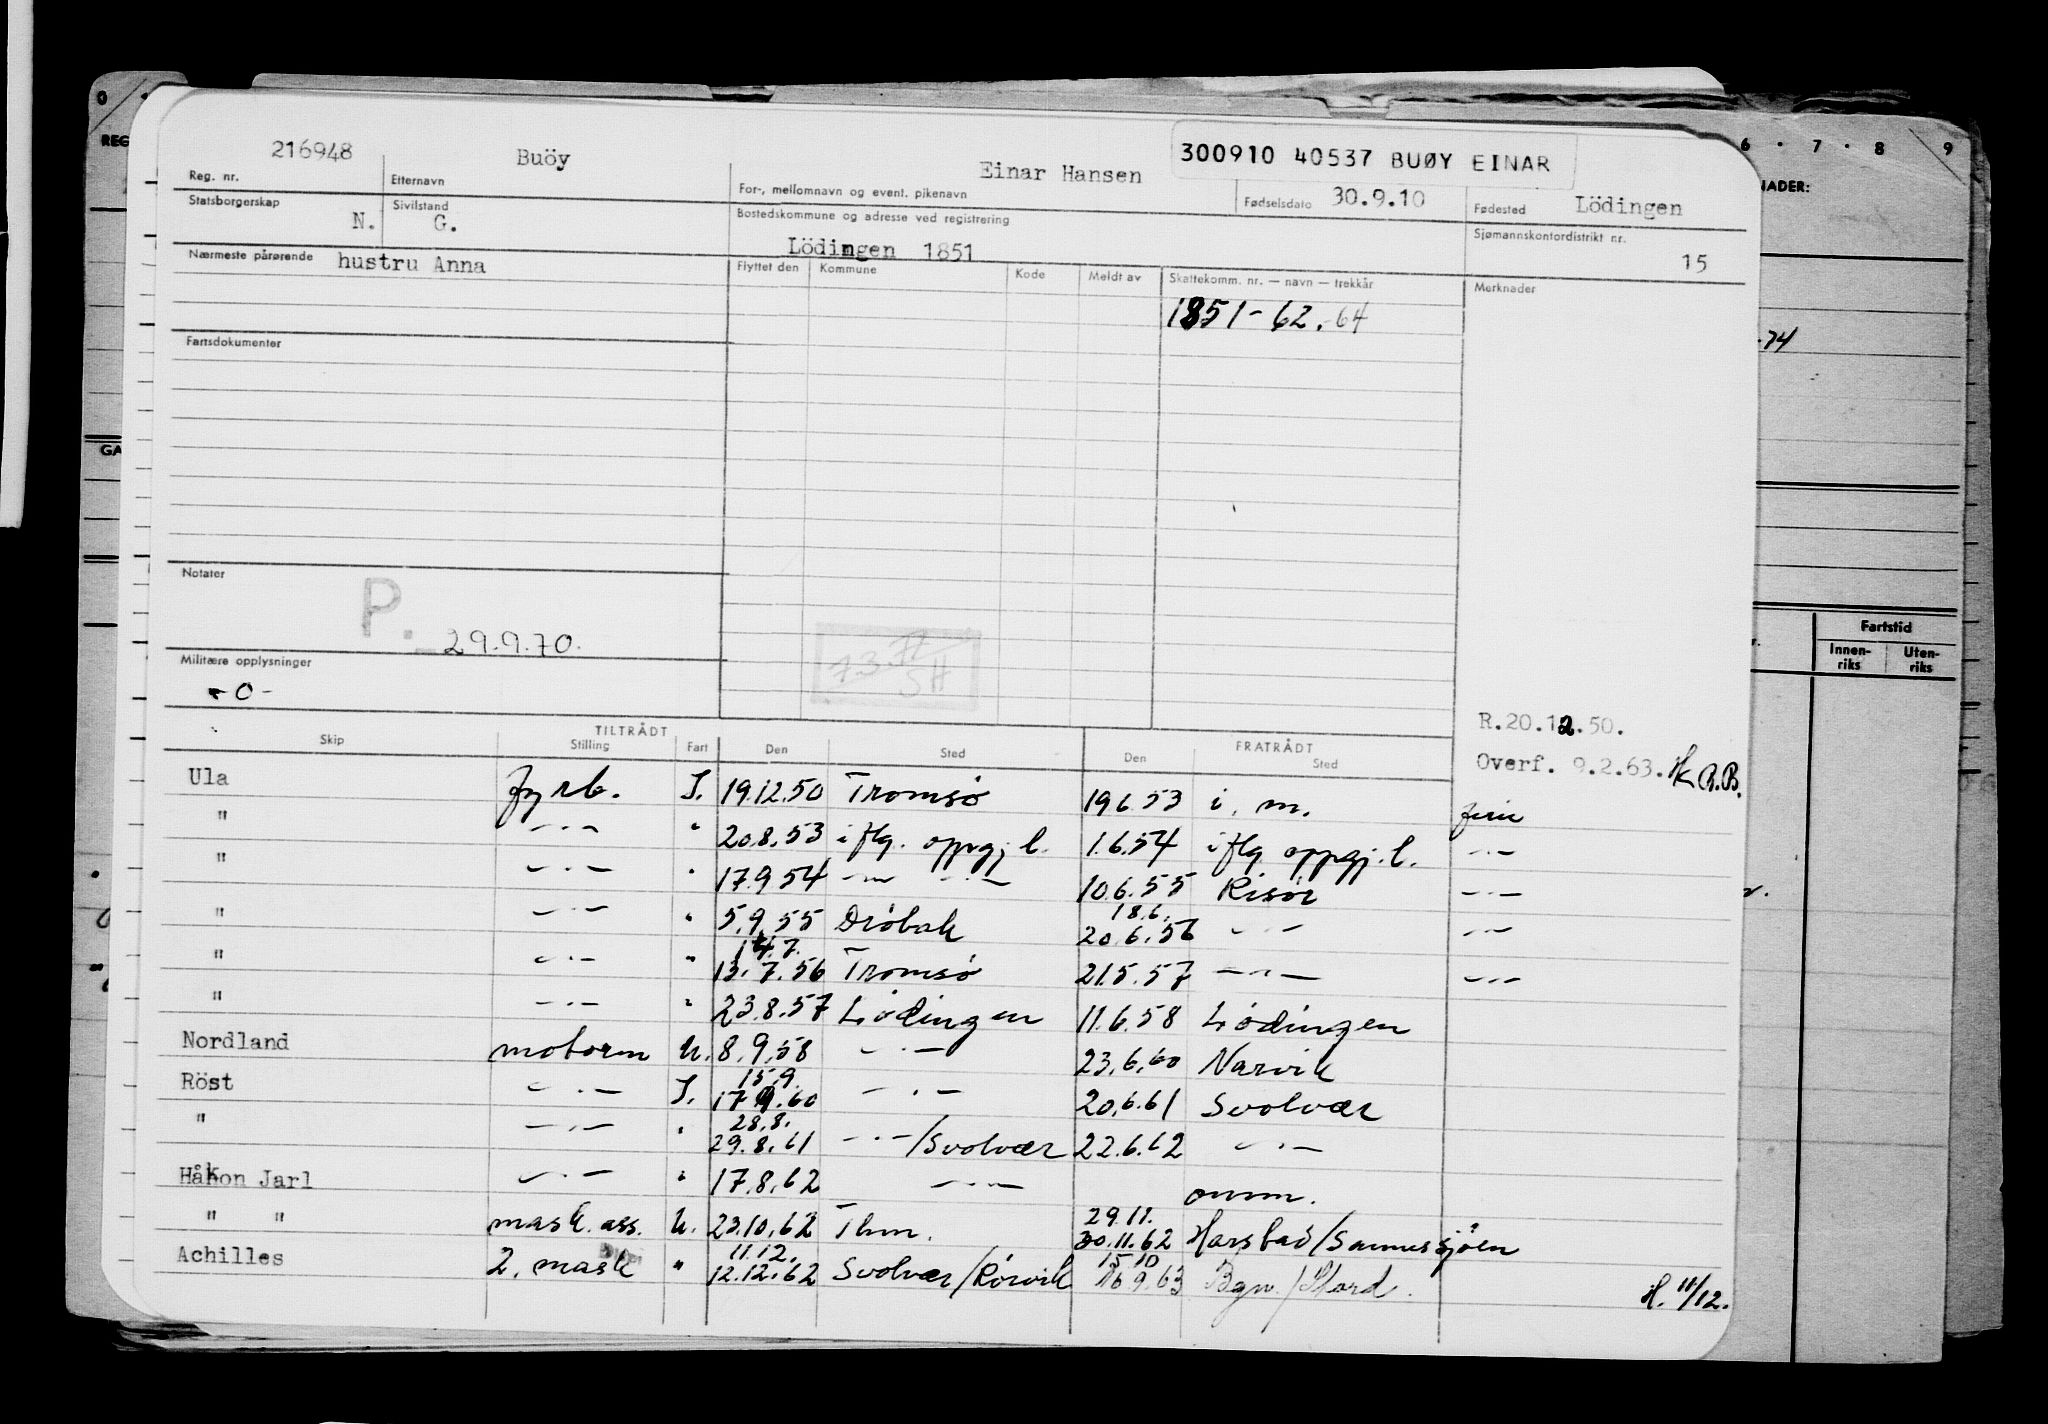 0 6 · 7 · 8 9
216948 Buöy Einar Hansen 300910 40537 BUØY EINAR
Reg. nr. Etternavn For-, mellomnavn og event. pikenavn Fødselsdato 30.9.10 Fødested Lödingen
Statsborgerskap N. Sivilstand G. Bostedskommune og adresse ved registrering Lödingen 1851 Sjømannskontordistrikt nr. 15
Nærmeste pårørende hustru Anna Flyttet den Kommune Kode Meldt av Skattekomm. nr. — navn — trekkår Merknader
1851-62.-64
Fartsdokumenter
-74
Notater
P. 29.9.70.
7.3.77 SH
Militære opplysninger
-0-
R.20.12.50.
Overf. 9.2.63. Hk R.B.
Fartstid
Innen-riks Uten-riks
TILTRÅDT FRATRÅDT
Skip Stilling Fart Den Sted Den Sted
Ula fyrb. I. 19.12.50 Tromsø 19.6.53 i. m. ferie
" -"- " 20.8.53 iflg. oppgj. l. 1.6.54 iflg oppgj. l. -"-
" -"- " 17.9.54 -"- -"- 10.6.55 Risør -"-
18.6.
" -"- " 5.9.55 Drøbak 20.6.56 -"- -"-
14.7.
" -"- " 13.7.56 Tromsø 21.5.57 -"- -"-
" -"- " 23.8.57 Lødingen 11.6.58 Lødingen
Nordland motorm U. 8.9.58 -"- 23.6.60 Narvik
15.9.
Röst -"- I. 17.9.60 -"- 20.6.61 Svolvær
28.8.
" -"- " 29.8.61 -"-/Svolvær 22.6.62 -"-
Håkon Jarl -"- " 17.8.62 -"- omm.
29.11.
" " mask. ass. U. 23.10.62 Thm. 30.11.62 Harstad/Sannessjøen
11.12. 15 10
Achilles 2. mask " 12.12.62 Svolvær/Rørvik 16 9.63 Bgn./Stord.
H. 11/12.